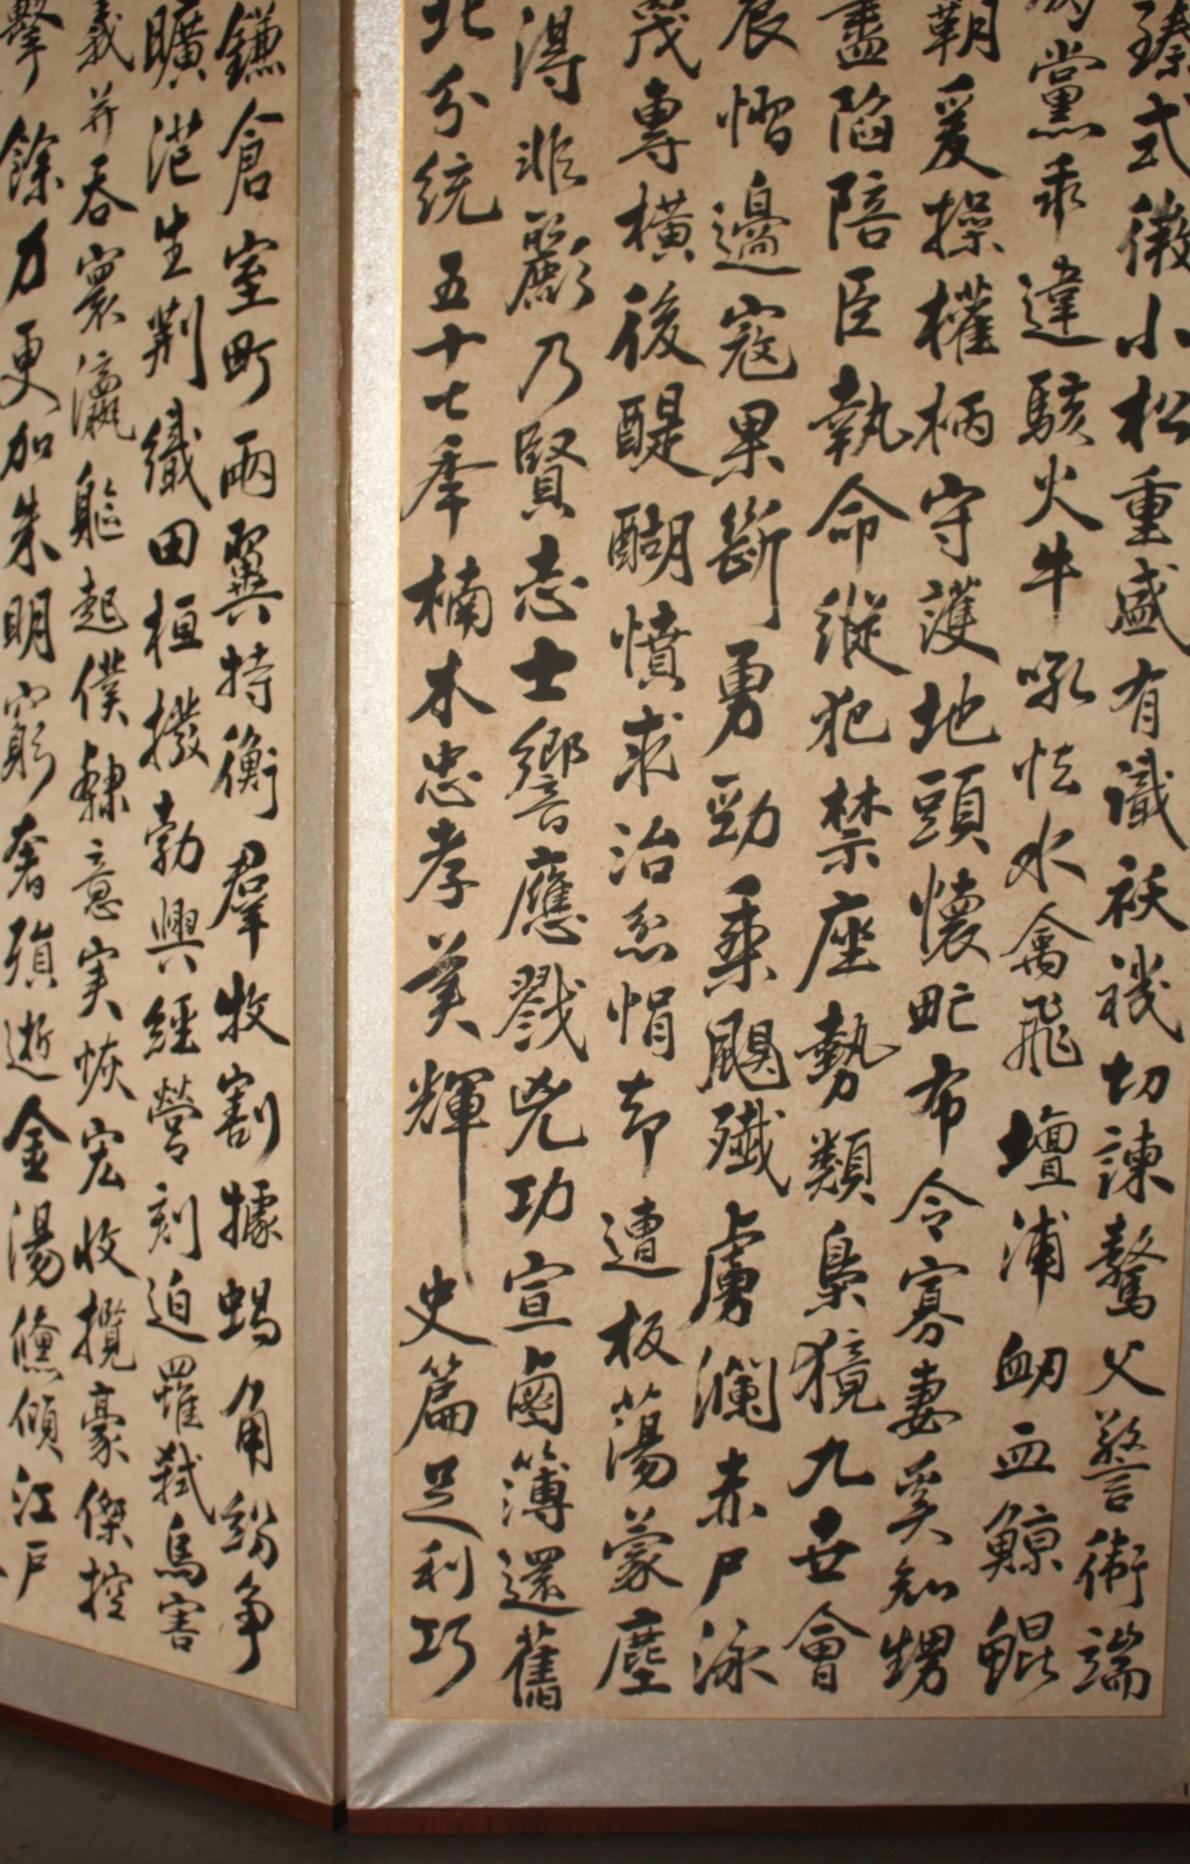 臻式微小松重盛有識袄禨切諫驁父警衛端
黨乖違駭火牛吼怯水禽飛壇浦衂血鯨鯤
朝爰操權柄守護地頭懷畎布令寡妻奚知甥
盡陷陪臣執命縱犯禁座勢類梟獍九世會
辰慴邊寇果斷勇勁乘颶殲虜瀾赤尸泳
茂專橫後醍醐憤求治忽悁却遭板蕩蒙塵
得非熊羆乃賢志士響應戮兇功宣鹵簿還舊
北分統五十七季楠木忠孝美輝史篇足利巧
鎌倉室町兩翼特衡群牧割據蝸角紛爭
曠范生荆織田桓撥勃興經營刻迫羅弒馬害
義并吞寰瀛軀起僕隸意実恢宏收攬豪傑控
擊餘力更加朱明窮奢殞逝金湯儵傾江戶